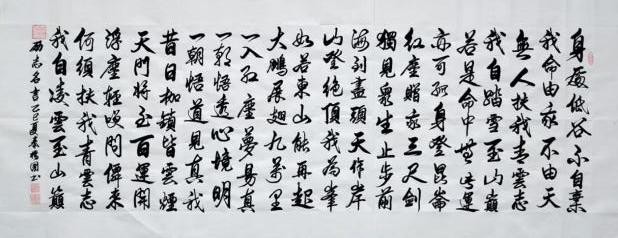 身處低谷不自棄
我命由我不由天
無人扶我青雲志
我自踏雪至山巔
若是命中無此運
亦可孤身登崑崙
紅塵贈我三尺劍
獨見眾生止步前
海到盡頭天作岸
山登絕頂我為峯
如若東山能再起
大鵬展翅九萬里
一入紅塵夢易真
一朝悟透心境明
一朝悟道見真我
昔日枷鎖皆雲煙
天門將至百運開
浮塵輕嘆問僊來
何須扶我青雲志
我自凌雲至山巔
志名言乙巳夏